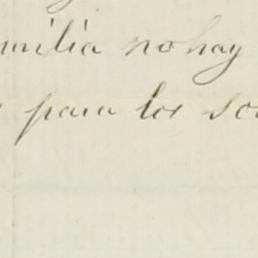 milia no hay
para los